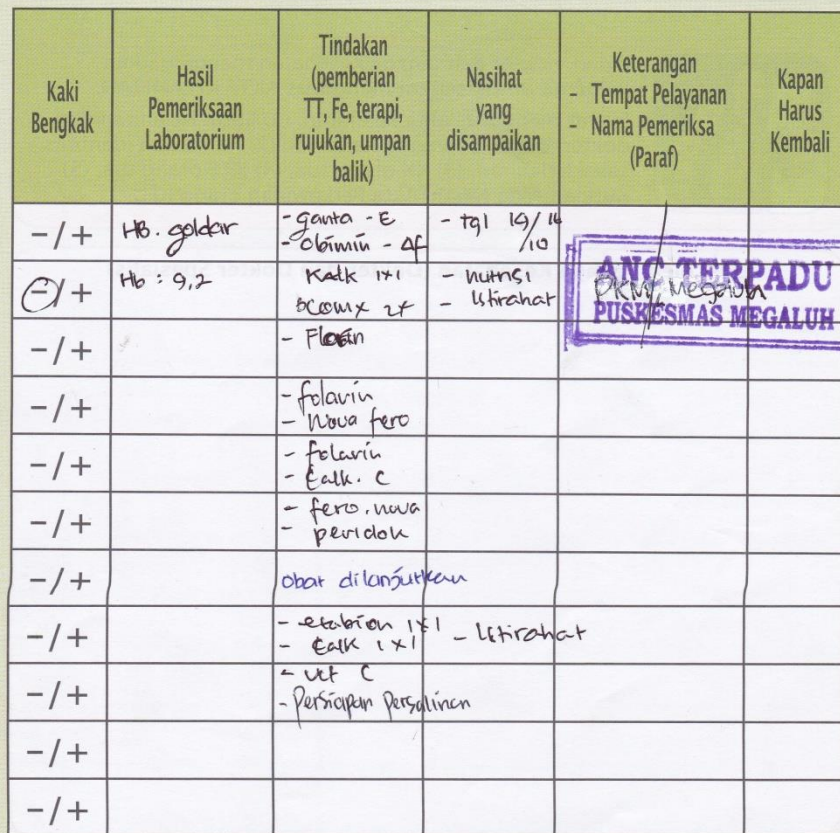 Kaki
Bengkak
Hasil
Pemeriksaan
Laboratorium
Tindakan
(pemberian
TT, Fe, terapi,
rujukan, umpan
balik)
Nasihat
yang
disampaikan
Keterangan
- Tempat Pelayanan
- Nama Pemeriksa
(Paraf)
Kapan
Harus
Kembali
-/+
HB. goldar
- E
- Obimin - AF
- tgl 19/16
/10
-/+
Hb : 9,2
Kalk 1x1
bcomx 2x
- nutrisi
- Istirahat
ANC TERPADU
PKM Megaluh
PUSKESMAS MEGALUH
-/+
-/+
- folavin
- Nova fero
-/+
- folavin
- Calk. C
-/+
- fero. nova
- peridok
-/+
obat dilanjutkan
-/+
- etabion 1x1
- Calk 1x1
- Istirahat
-/+
- vit C
- Persiapan Persalinan
-/+
-/+